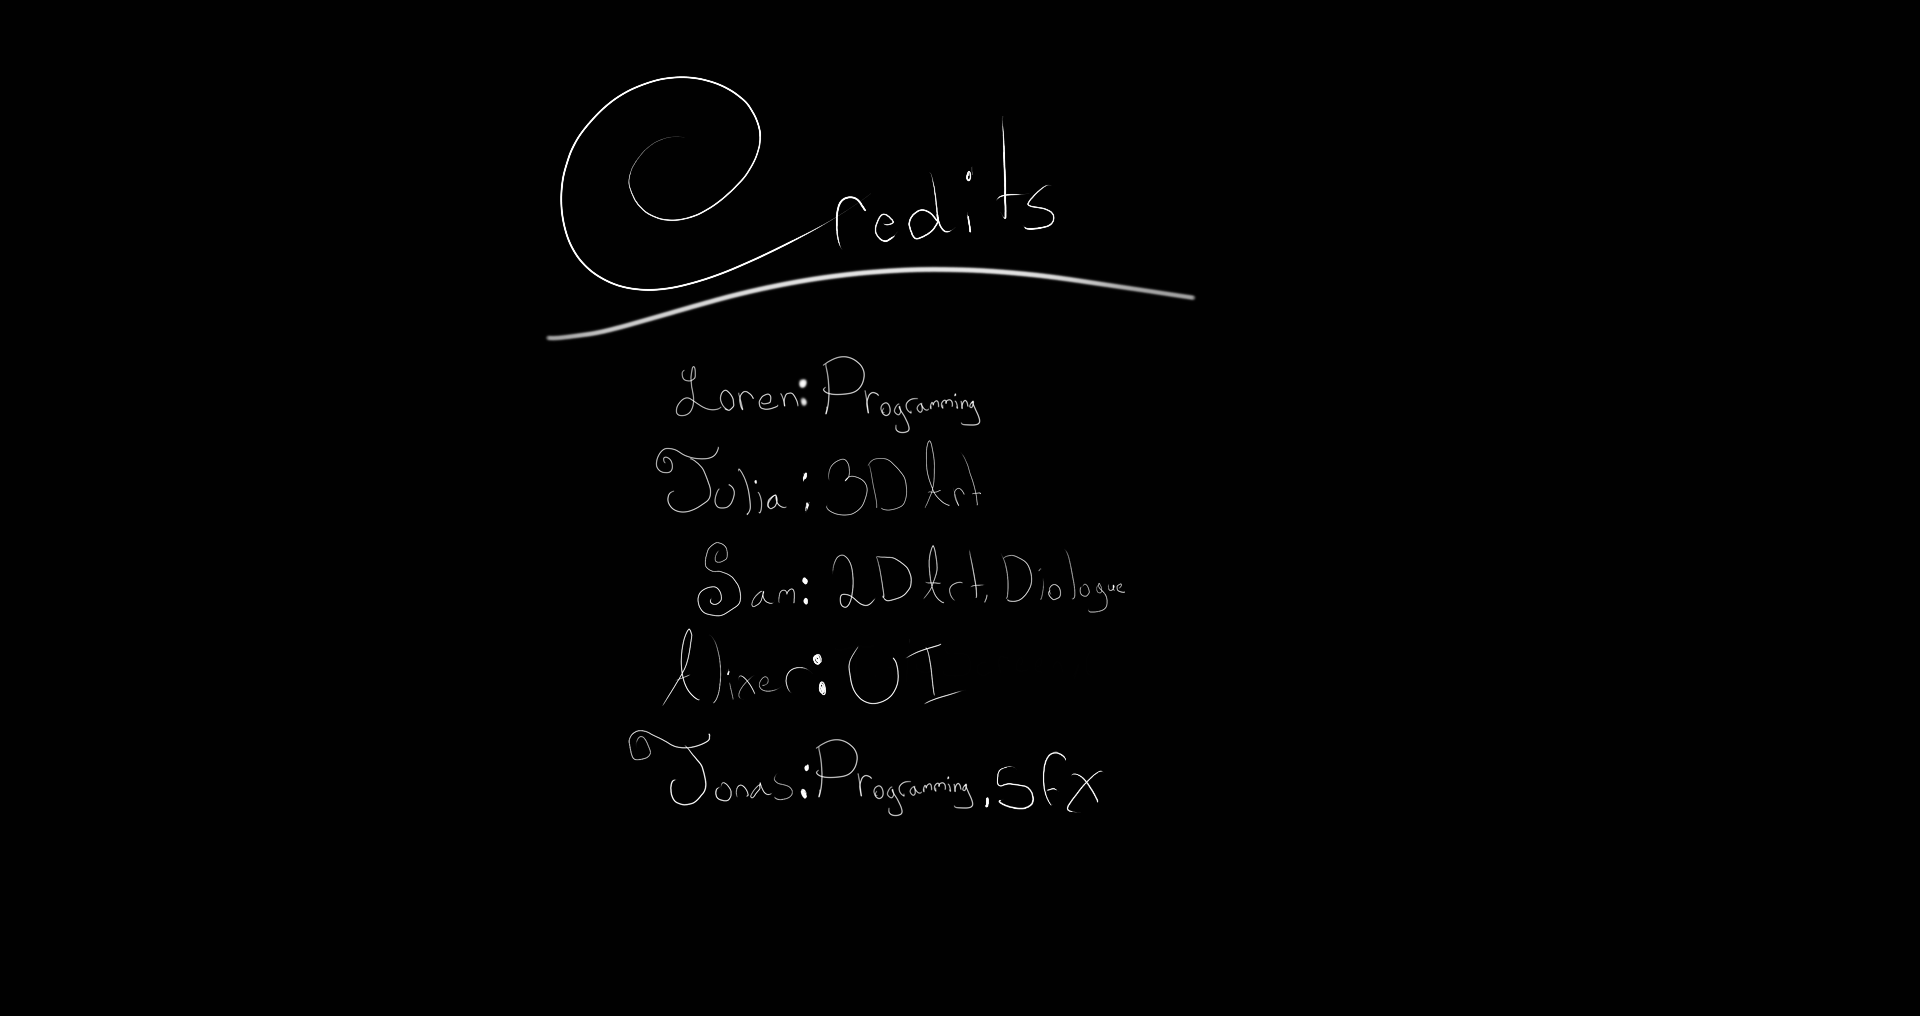 Credits
Loren: Programming
Julia: 3D Art
Sam: 2D Art, Diologue
Alixer: UI
Jonas: Programming, sfx